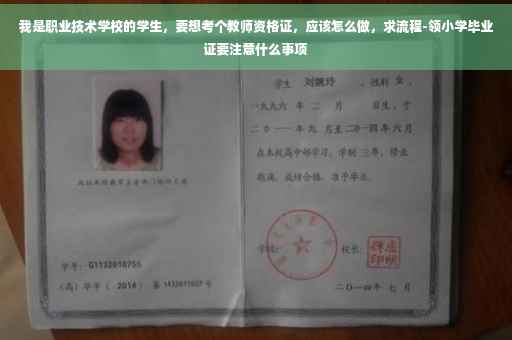 我是职业技术学校的学生，要想考个教师资格证，应该怎么做，求流程-领小学毕业
证要注意什么事项
学生 刘婉玲 ，性别 女 ，
一九九六 年 二 月 日生，于
二〇一一年九 月至二〇一四年 六 月
在本校高中部学习，学制 三年，修业
期满，成绩合格，准予毕业。
学校： 校长：
学号：G1132010755
（高）毕字（ 2014 ）第 1432011607 号
二〇一四年 七 月